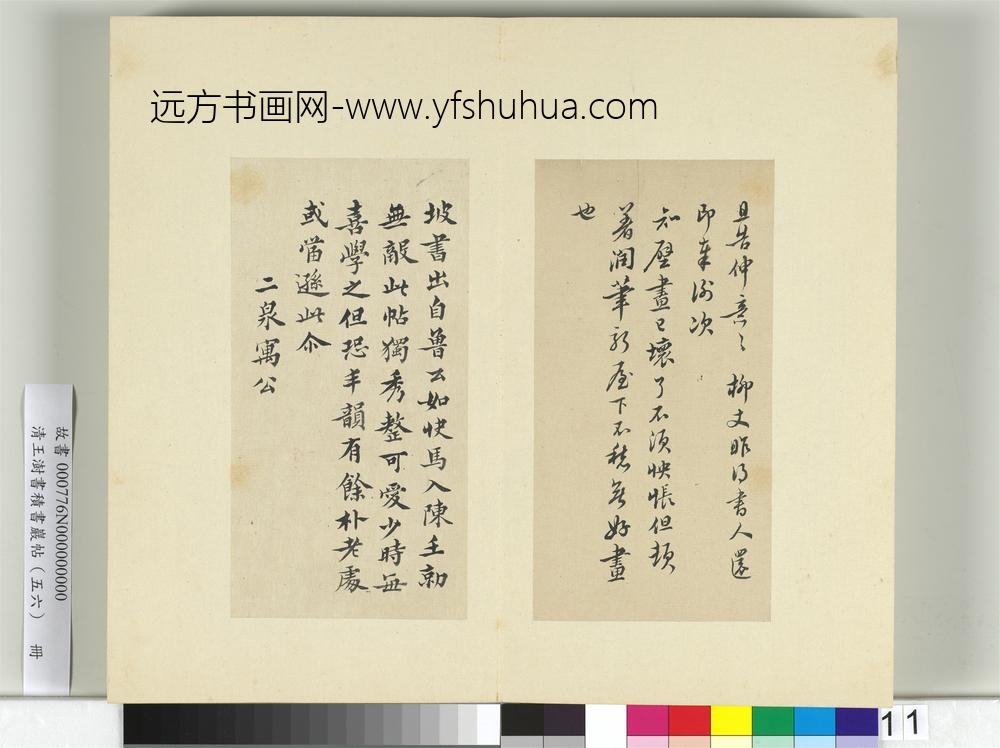 远方书画网-www.yfshuhua.com
且告仲意ミ 柳丈昨得書人還
即奉謝次
知壁畫已壞了不須怏悵但頻
著潤筆新屋下不愁無好畫
也
坡書出自魯公如快馬入陳主勍
無敵此帖獨秀整可愛少時每
喜學之但恐丰韻有餘朴老處
或當遜此尒
二泉寓公
故書 000776N000000000
清王澍書積書巖帖(五六) 冊
11